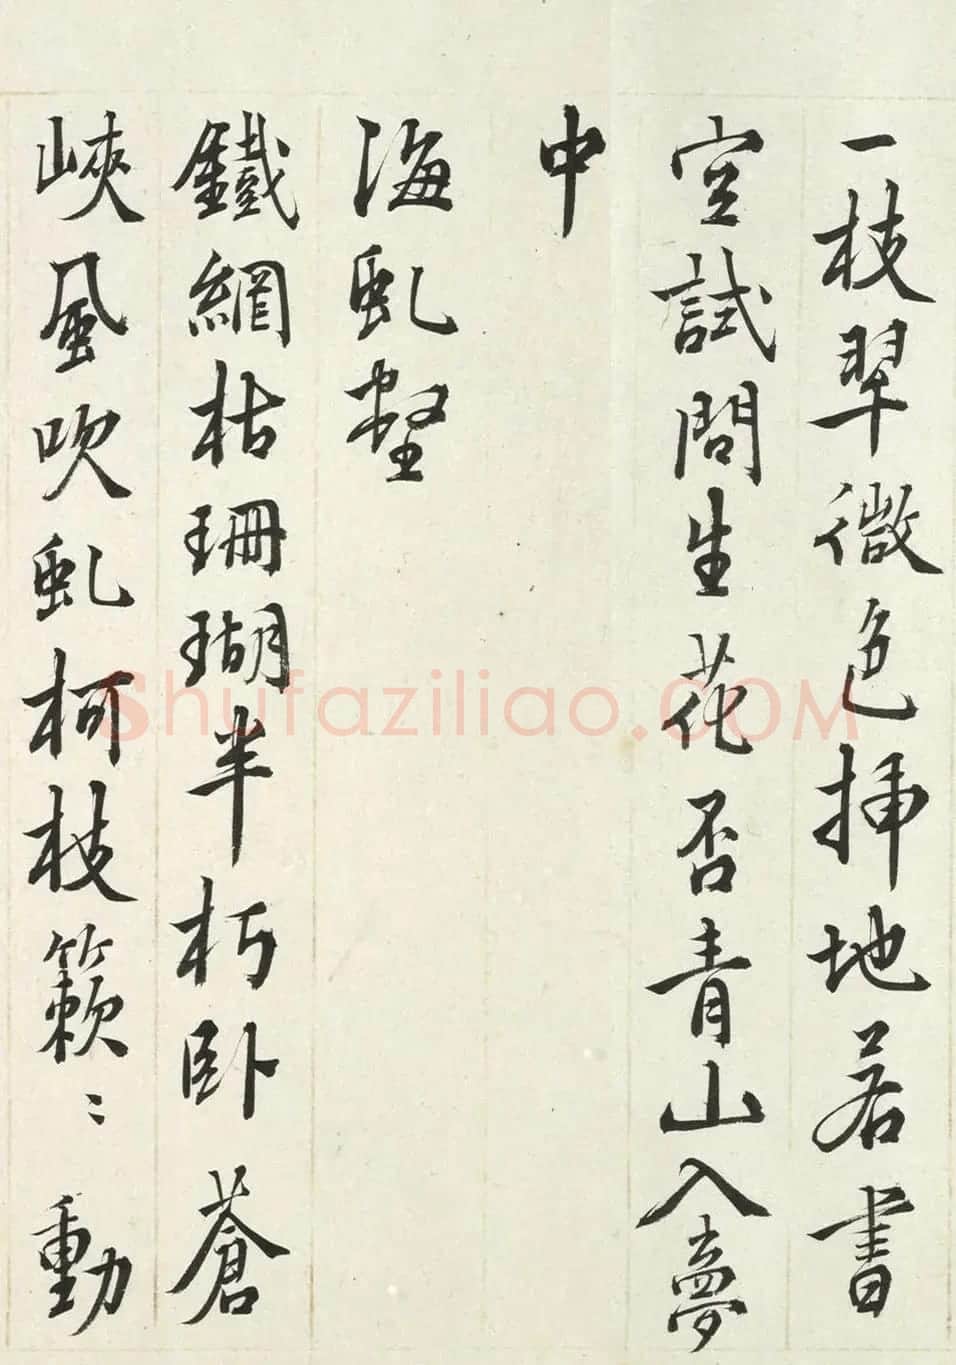 一枝翠微色插地若書
空試問生花否青山入夢
中
海虬壑
鐵網枯珊瑚半朽卧蒼
峽風吹虬柯枝籟〻動
shufaziliao.COM